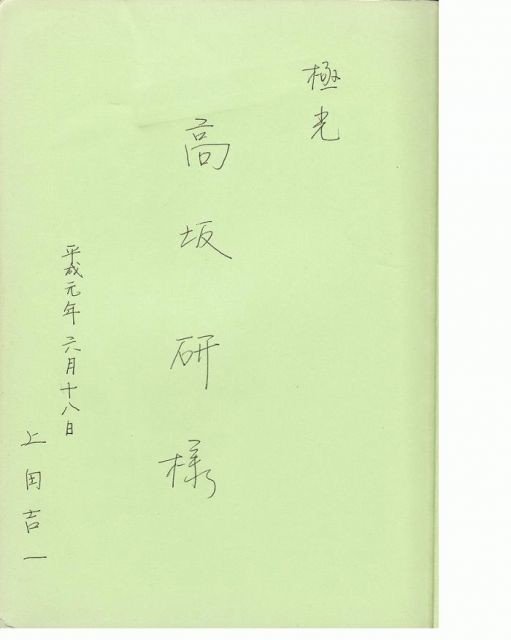 極光
高坂研様
平成元年六月十八日
上田吉一